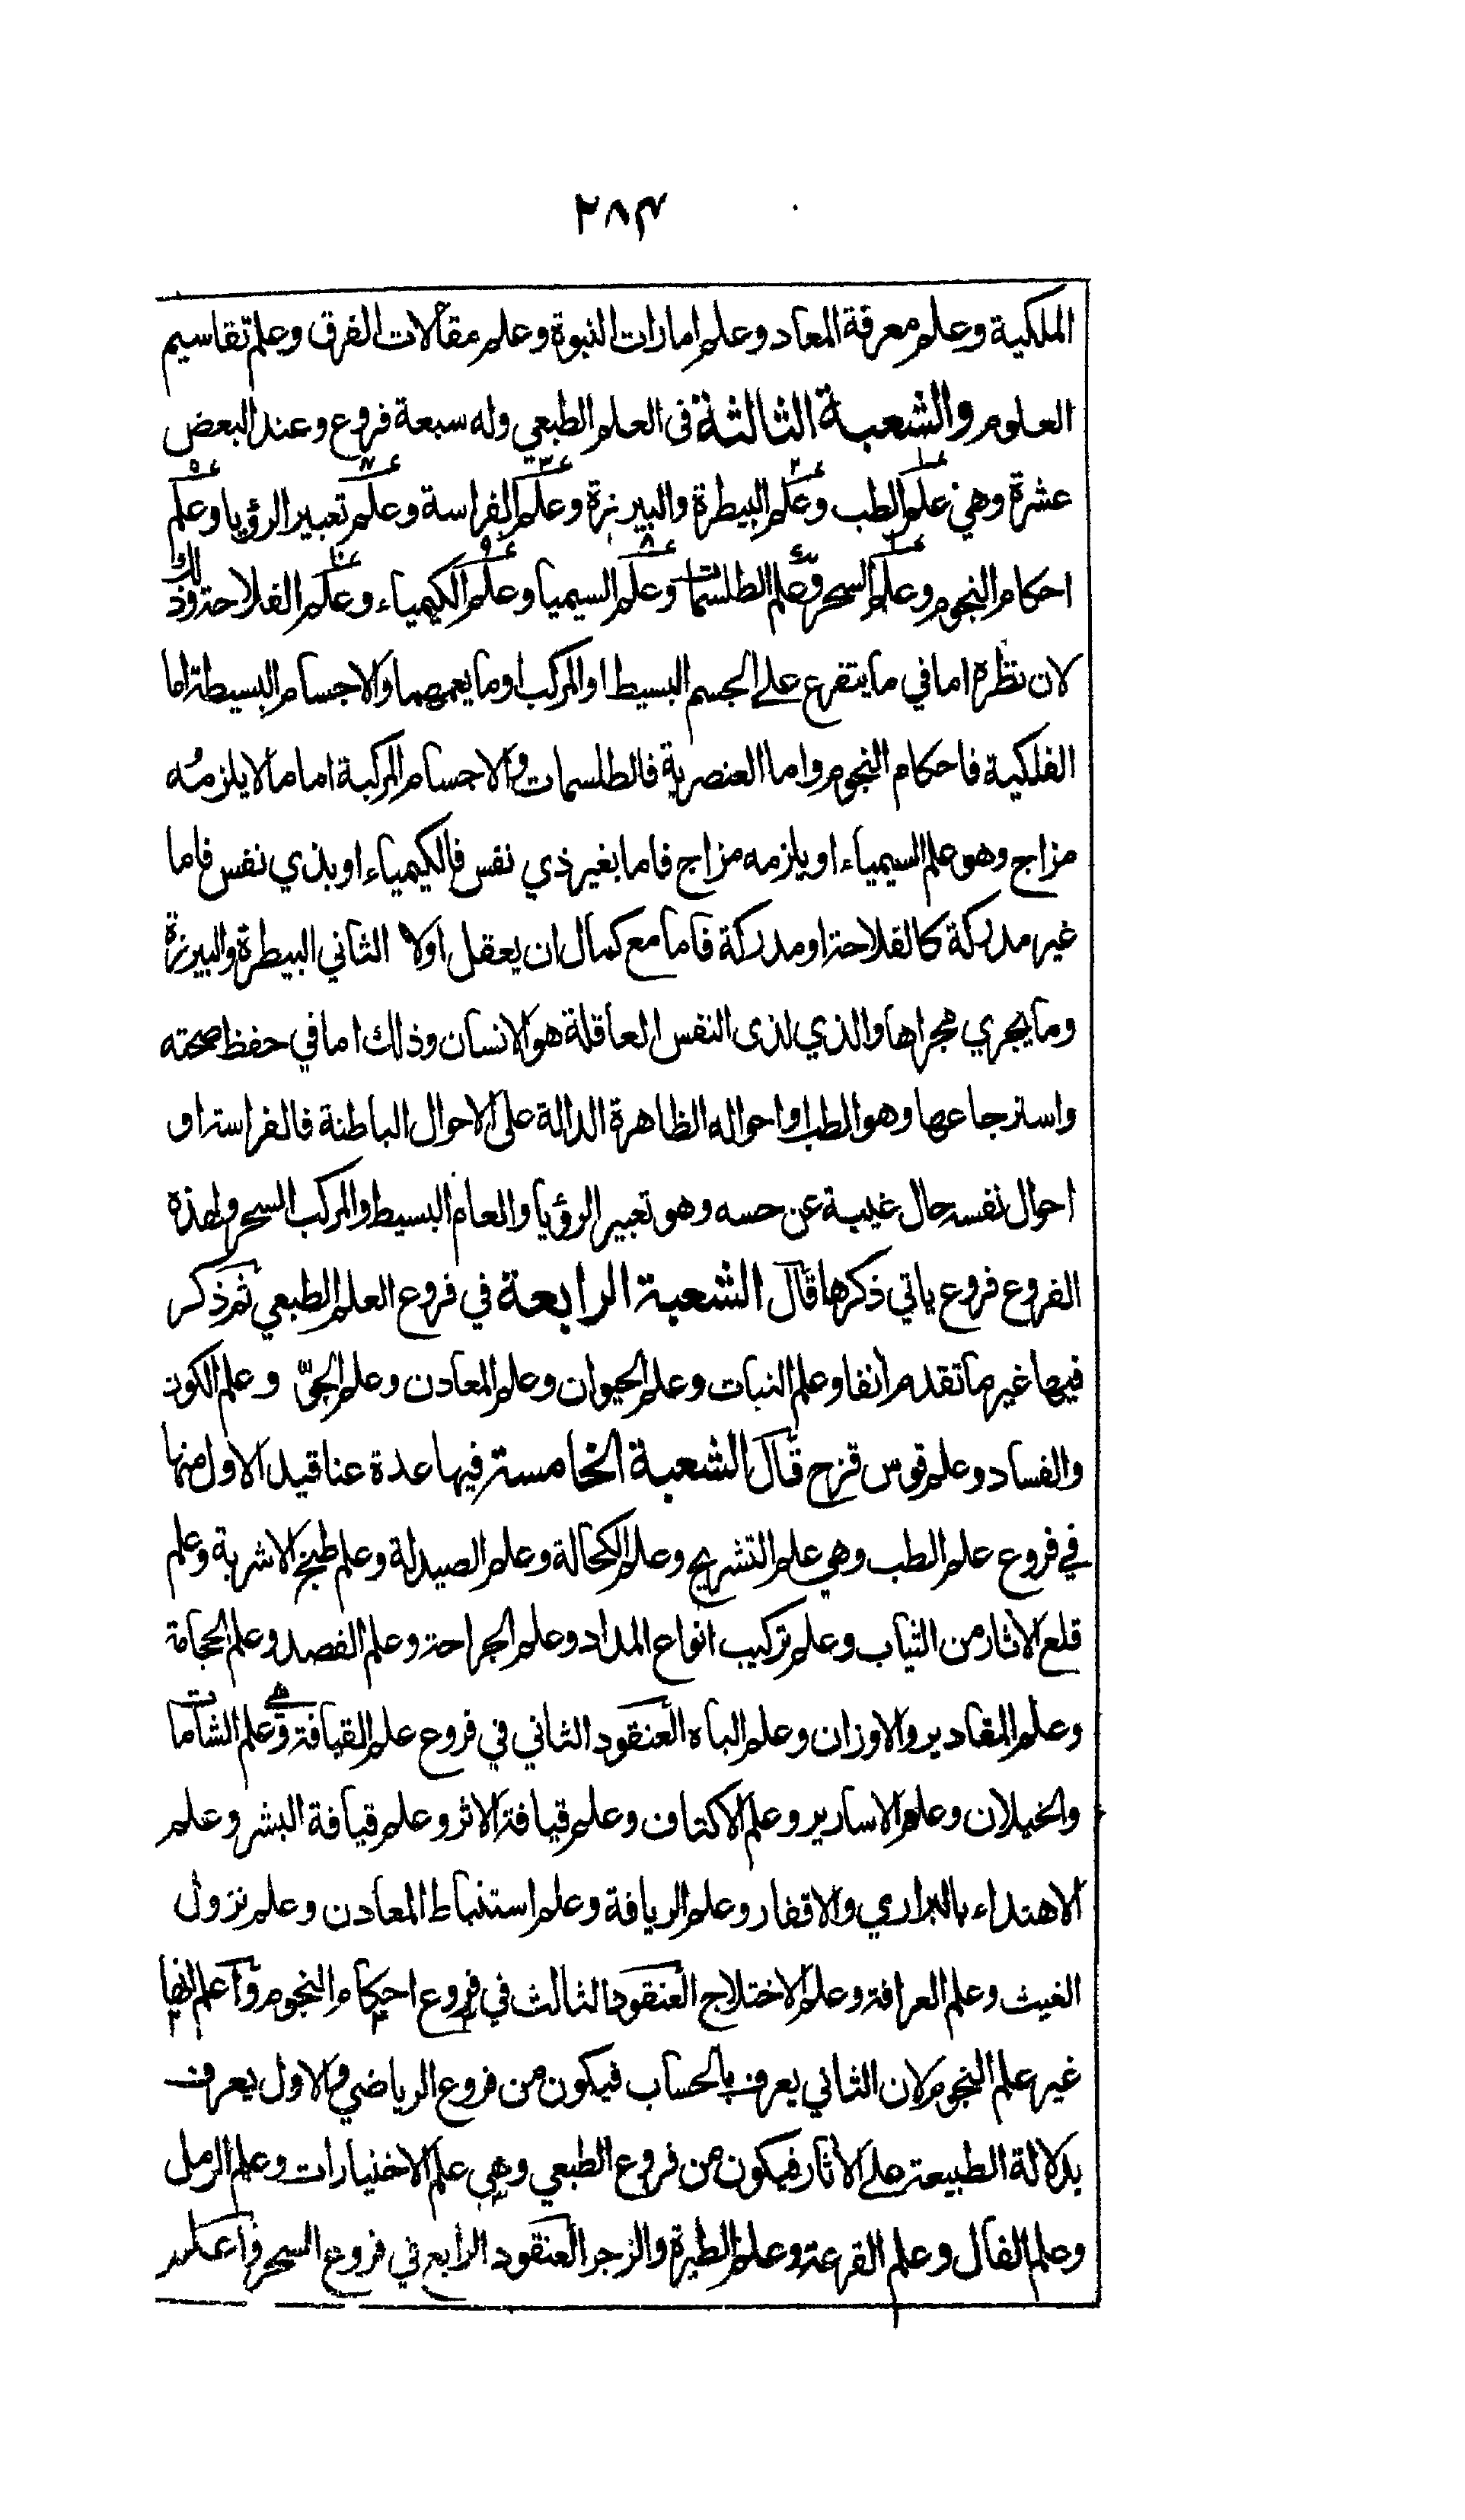 ٢٨٤
الملكية وعلم معرفة المعاد وعلم امارات النبوة وعلم مقالات الفرق وعلم تقاسيم
العلوم والشعبة الثالثة فى العلم الطبعي وله سبعة فروع وعند البعض
عشرة وهي علم الطب وعلم البيطرة والبيزرة وعلم الفراسة وعلم تعبير الرؤيا وعلم
احكام النجوم وعلم السحر وعلم الطلسمات وعلم السيميا وعلم الكيمياء وعلم الفلاحة وذلك
لان نظره اما في ما يتفرع على الجسم البسيط او المركب او ما يعمهما والاجسام البسيطة اما
الفلكية فاحكام النجوم واما العنصرية فالطلسمات والاجسام المركبة اما ما لا يلزمه
مزاج وهو علم السيمياء او يلزمه مزاج فاما بغير ذي نفس فالكيمياء او بذي نفس فاما
غير مدركة كالفلاحة او مدركة فاما مع كمال ان يعقل اولا الثاني البيطرة والبيزرة
وما يجري مجراها والذي لذى النفس العاقلة هو الانسان وذلك اما في حفظ صحته
واسترجاعها وهو الطب او احواله الظاهرة الدالة على الاحوال الباطنة فالفراسة او
احوال نفسه حال غيبة عن حسه وهو تعبير الرؤيا والعام البسيط والمركب السحر ولهذه
الفروع فروع ياتي ذكرها قال الشعبة الرابعة في فروع العلم الطبعي ثم ذكر
فيها غير ما تقدم انفا وعلم النبات وعلم الحيوان وعلم المعادن وعلم الجوّ وعلم الكون
والفساد وعلم قوس قزح قال الشعبة الخامسة فيها عدة عناقيد الاول منها
في فروع علم الطب وهي علم التشريح وعلم الكحالة وعلم الصيدلة وعلم طبخ الاشربة وعلم
قلع الاثار من الثياب وعلم تركيب انواع المداد وعلم الجراحة وعلم الفصد وعلم الحجامة
وعلم المقادير والاوزان وعلم الباه العنقود الثاني في فروع علم القيافة وهي علم الشامات
والخيلان وعلم الاسارير وعلم الاكتاف وعلم قيافة الاثر وعلم قيافة البشر وعلم
الاهتداء بالبراري والاقفار وعلم الريافة وعلم استنباط المعادن وعلم نزول
الغيث وعلم العرافة وعلم الاختلاج العنقود الثالث في فروع احكام النجوم واعلم انها
غير علم النجوم لان الثاني يعرف بالحساب فيكون من فروع الرياضي والاول يعرف
بدلالة الطبيعة على الاثار فيكون من فروع الطبعي وهي علم الاختيارات وعلم الرمل
وعلم الفال وعلم القرعة وعلم الطيرة والزجر العنقود الرابع في فروع السحر واعلم